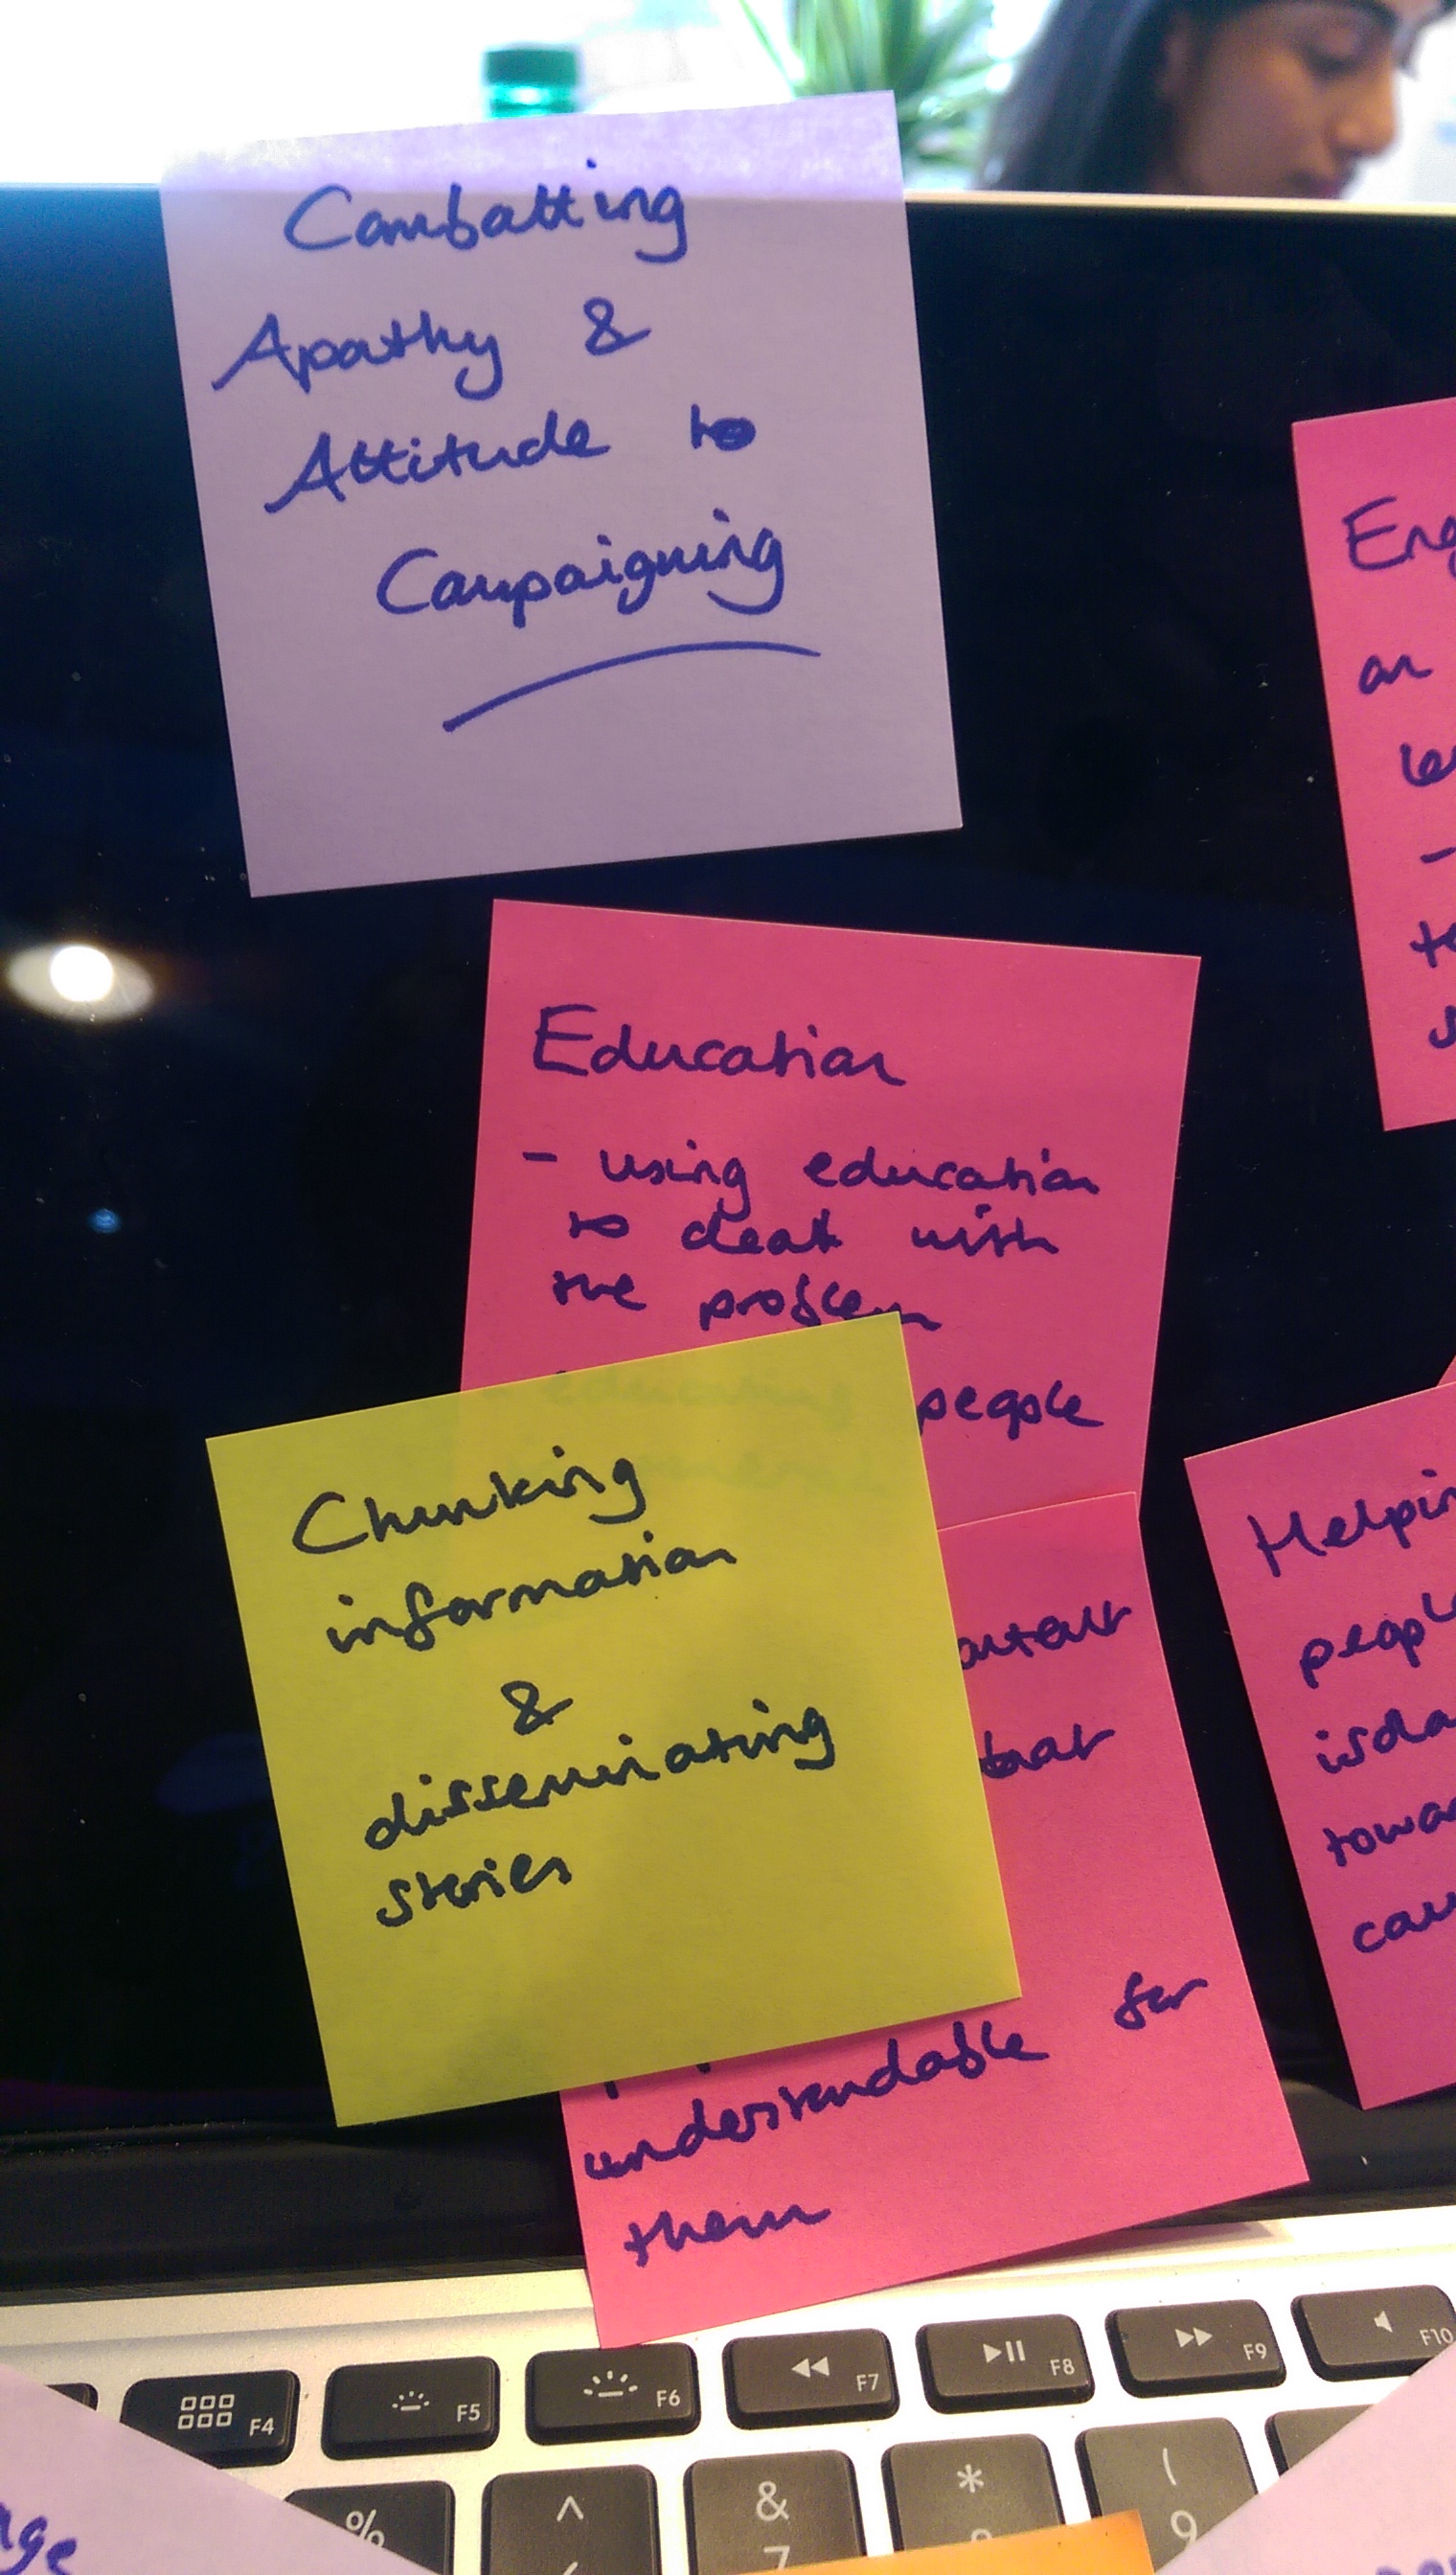 Combatting
Apathy &
Attitude to
Campaigning
Education
- using education
to dealt with
the problem
people
Chunking
information
&
disseminating
stories
that
understandable for
them
an
Helpin
people
isola
towa
F4
F5
F6
F7
F8
F9
F10
%
^
&
7
*
(
9